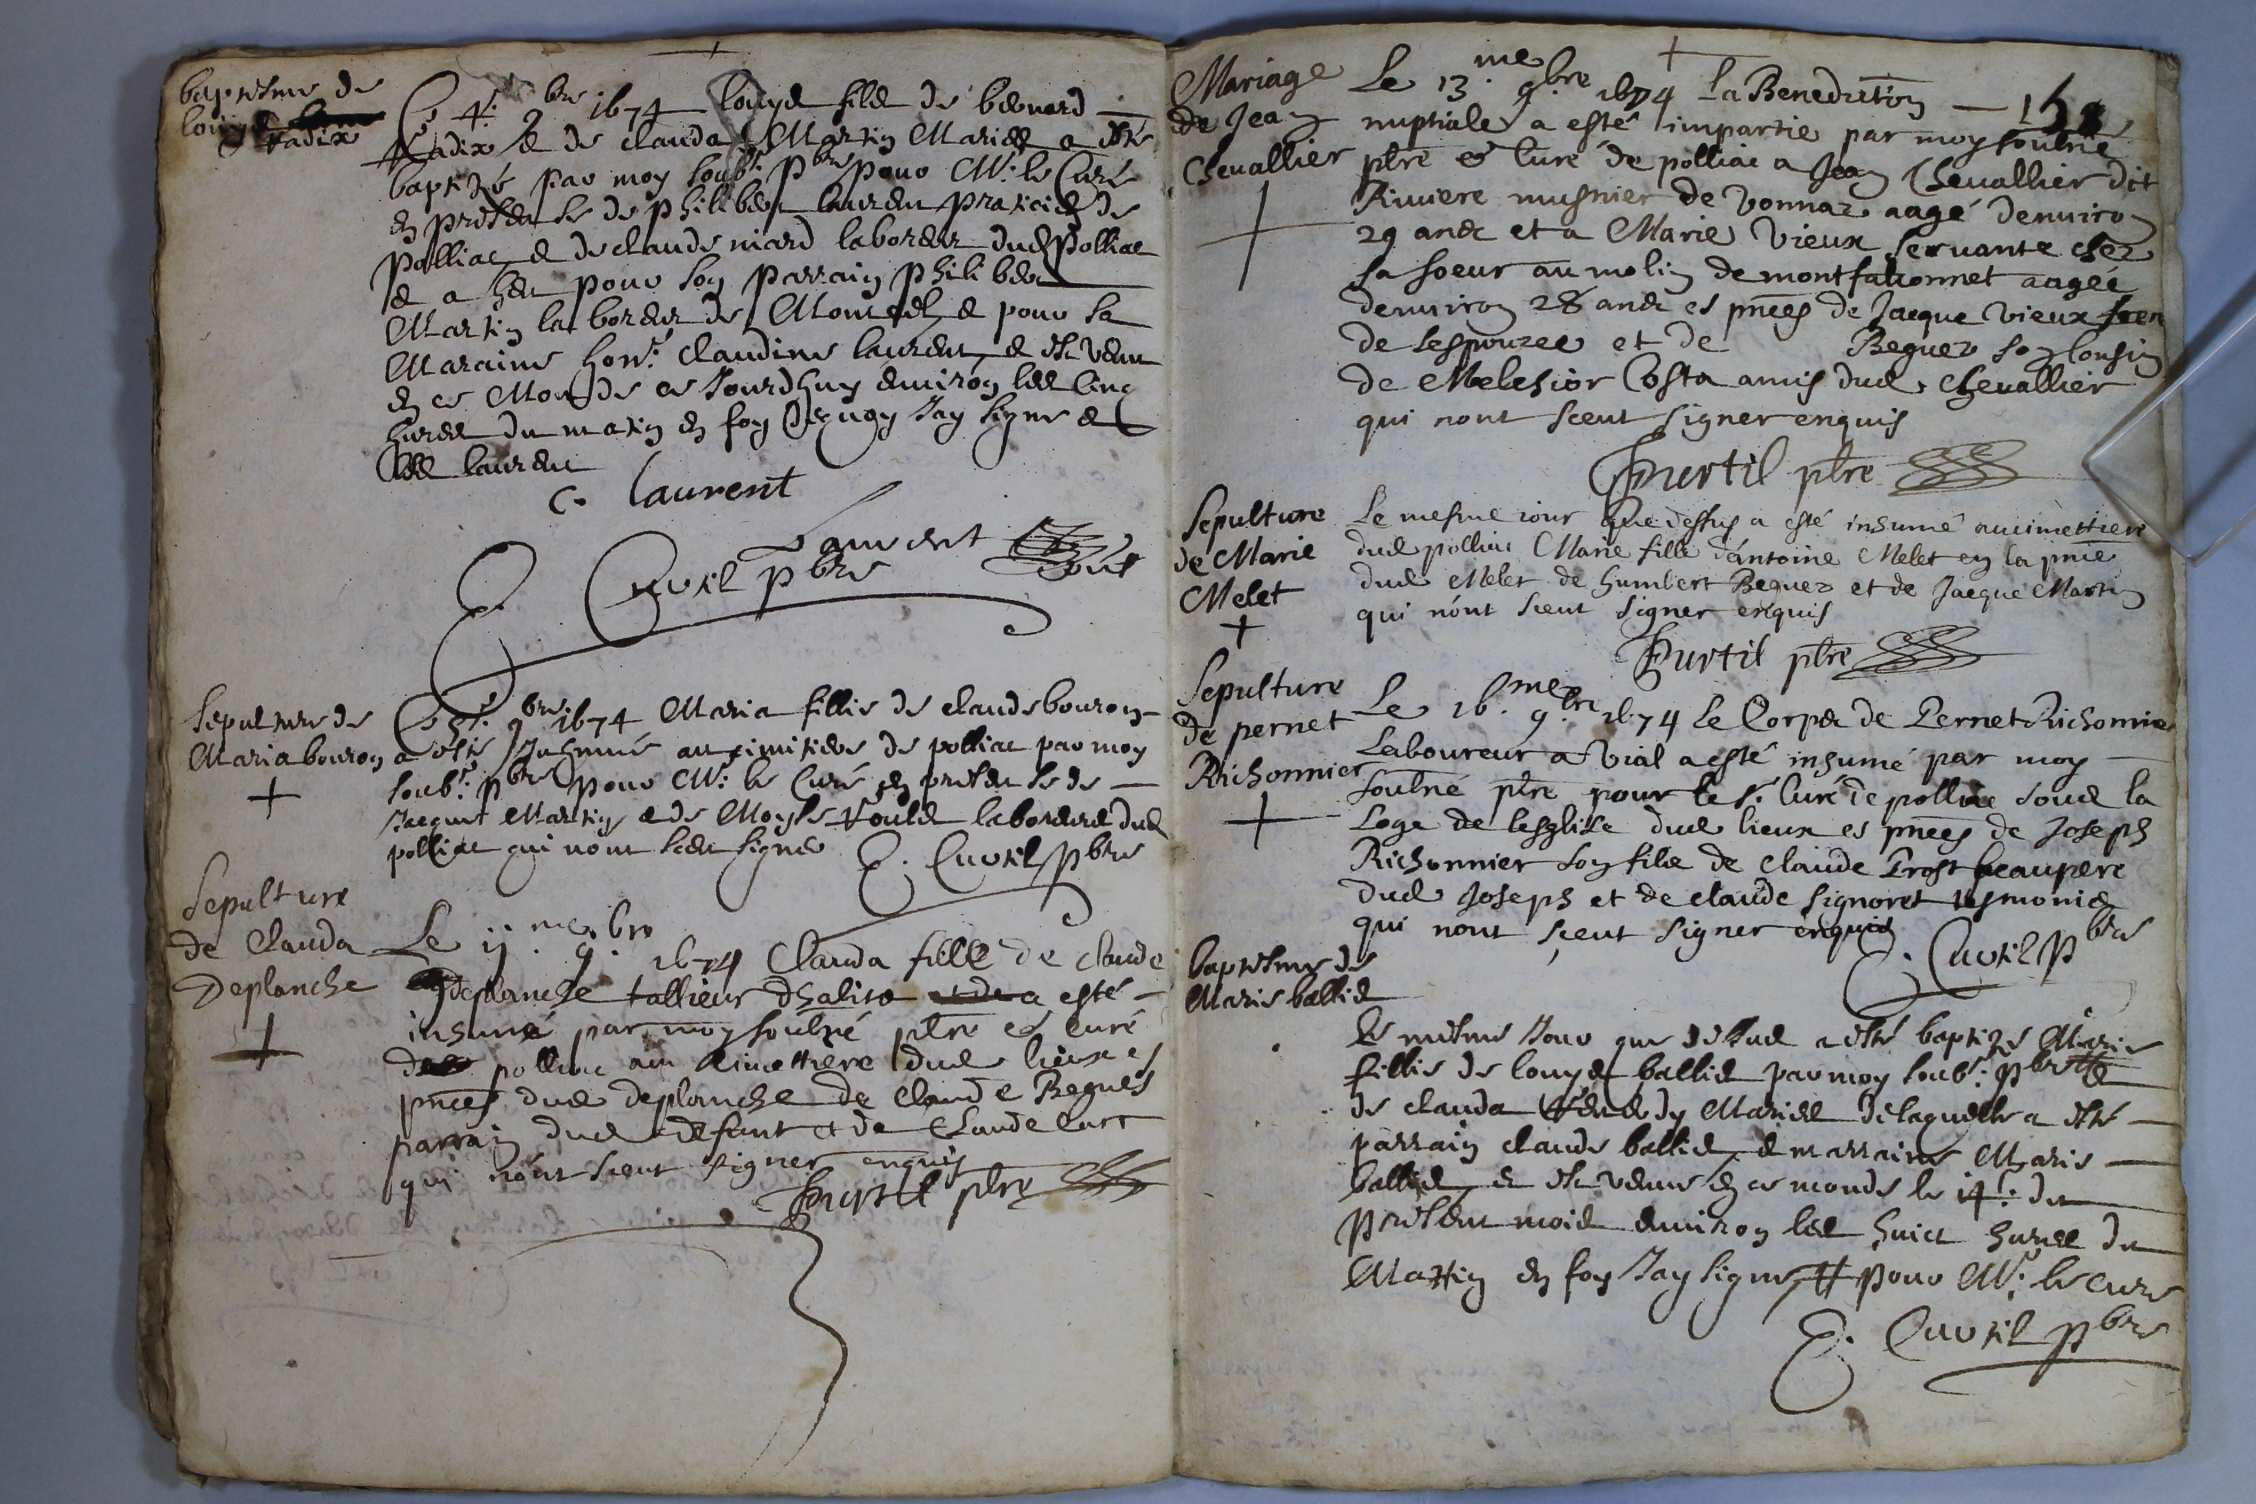 baptesme de
louys
radix
Le 4e. 9bre 1674 louys fils de benoird
radix & de clauda Martin Maries a esté
baptizé par moy soubs. pbre pour Mr. le Curé
en presence de philibert laurent praticien de
Polliac & de claude niard laboreur dud Polliac
& a heu pour son parrain philibert
Martin laboreur de & pour sa
Maraine hon. claudine laurent & est venu
en ce Monde ce Jourdhuy environ les cinq
hures du matin en foy dequoy Jay signe &
led laurent
C. laurent
Laurent
E. Cuvtil pbre
Sepulture de
Maria bouron
Le 9bre 1674 Maria fillie de claude bouron
a esté Inhumé au cimitiere de polliac par moy
soubs. pbre pour Mr. le Curé en presence de
Jacque Martin & de Moyse laboreurs dud
polliac qui nont sceu signe E. Cuvtil pbre
Sepulture
de Clauda
Deplanche
Le 11.me 9.bre 1674 Clauda fille de claude
deplanche tallieur dhabits a esté
inhumé par moy soubné ptre et curé
de polliac au cimettiere dud lieux es
pnces dud deplanche de Claude Beguet
parrain dud defunt et de Claude
qui nont sceut signer enquis
Purtil ptre
Mariage
de Jean
Chevallier
Le 13.me 9.bre 1674 La Benediction
nuptiale a esté impartie par moy soubné
ptre et Curé de polliac a Jean Chevallier dit
Riviere musnier de vonnaz aagé denviron
29 ands et a Marie Vieux servante chez
sa soeur au molin de montfalconnet aagée
denviron 28 ands es pnces de Jacque vieux frere
de lespouzee et de Beguet son Cousin
de Melchior Costa amis dud Chevallier
qui nont sceut signer enquis
Purtil ptre
Sepulture
de Marie
Melet
Le mesme iour que dessus a esté inhumé au cimettiere
dud polliac Marie fille d'antoine Melet en la pnce
dud Melet de humbert Beguet et de Jacque Martin
qui nont sceut signer enquis
Purtil ptre
Sepulture
de pernet
Richonnier
Le 16.me 9.bre 1674 Le Corps de Pernet Richonnier
Laboureur a Vial a esté inhumé par moy
soubné ptre pour le Sr. Curé de polliac soub la
Loge de lesglise dud lieux es pnces de Joseph
Richonnier son fils de Claude Prost beaupere
dud Joseph et de claude signoret tesmoins
qui nont sceut signer enquis
E. Cuvtil pbre
baptesme de
Marie ballid
Le mesme Jour que dessus a esté baptizé Marie
fillie de louys ballid par moy soubs. pbre &
de clauda Maries de laquelle a esté
parrain claude ballid & marraine Marie
ballid & est venue en ce monde le 14e. du
present mois environ les huict hures du
Mattin en foy Jay signe # pour Mr. le Curé
E. Cuvtil pbre